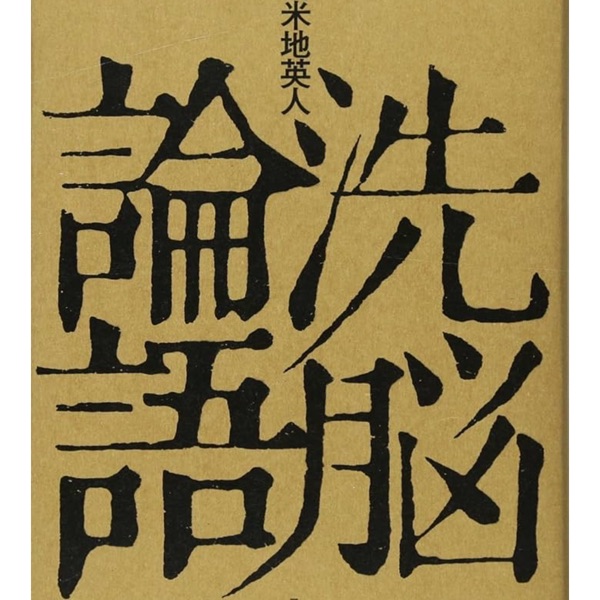 米地英人
洗脳
論語